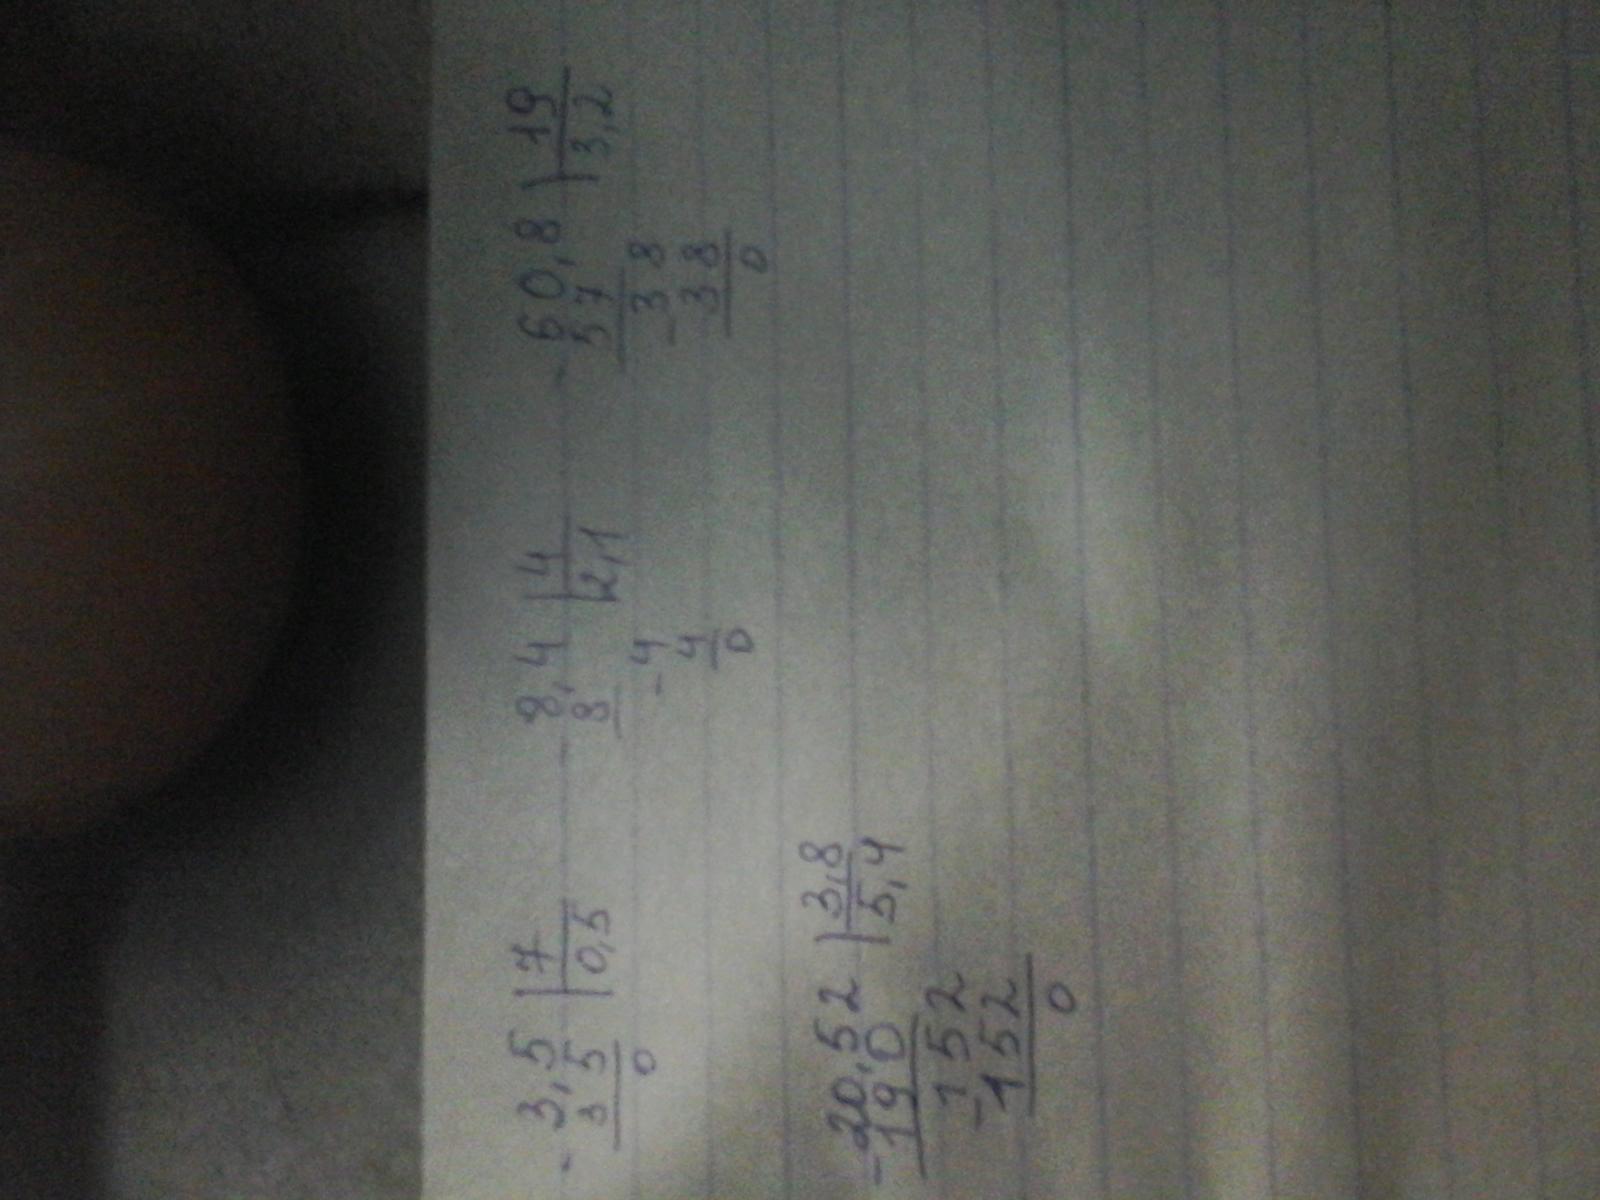 - 3,5 | 7
3 5 | 0,5
0
8,4 | 4
8 | 2,1
- 4
4
0
- 60,8 | 19
57 | 3,2
- 3 8
3 8
0
- 20,52 | 3,8
19 0 | 5,4
- 152
152
0